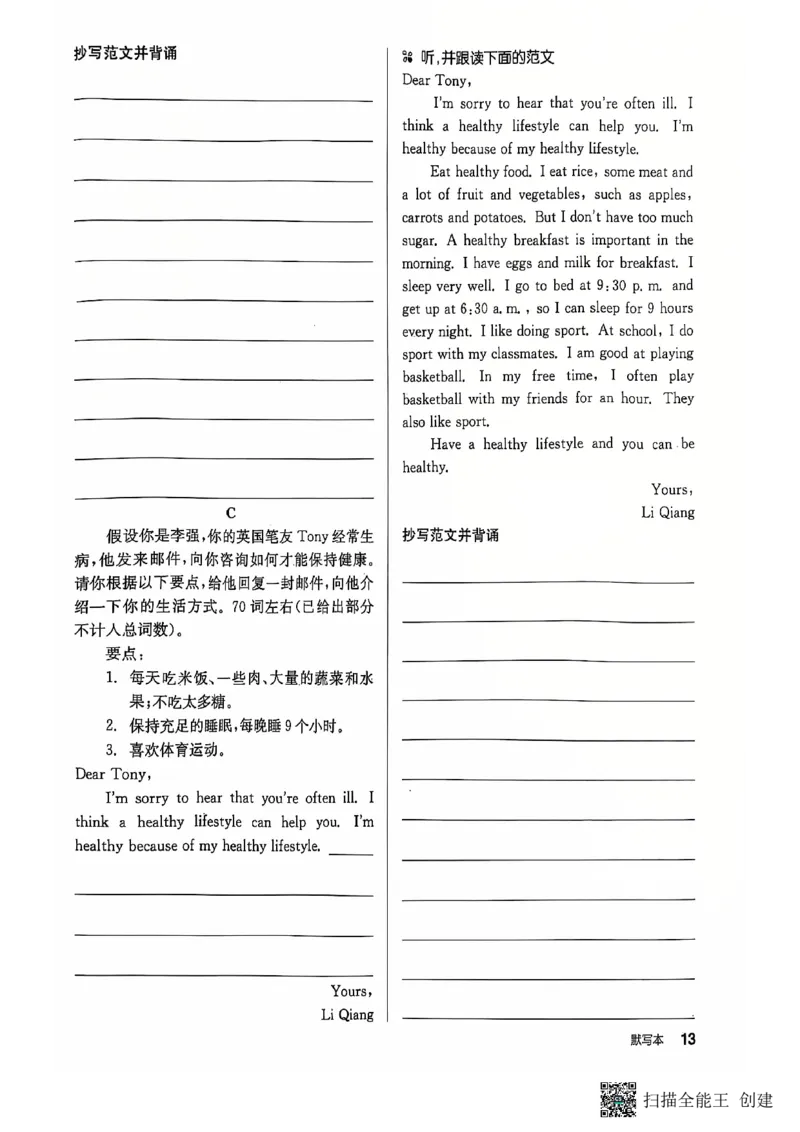 抄写范文并背诵
C
假设你是李强,你的英国笔友 Tony 经常生
病,他发来邮件,向你咨询如何才能保持健康。
请你根据以下要点,给他回复一封邮件,向他介
绍一下你的生活方式。70 词左右(已给出部分
不计入总词数)。
要点:
1. 每天吃米饭、一些肉、大量的蔬菜和水
果;不吃太多糖。
2. 保持充足的睡眠,每晚睡 9 个小时。
3. 喜欢体育运动。
Dear Tony,
I'm sorry to hear that you're often ill. I
think a healthy lifestyle can help you. I'm
healthy because of my healthy lifestyle.
Yours,
Li Qiang
听,并跟读下面的范文
Dear Tony,
I'm sorry to hear that you're often ill. I
think a healthy lifestyle can help you. I'm
healthy because of my healthy lifestyle.
Eat healthy food. I eat rice, some meat and
a lot of fruit and vegetables, such as apples,
carrots and potatoes. But I don't have too much
sugar. A healthy breakfast is important in the
morning. I have eggs and milk for breakfast. I
sleep very well. I go to bed at 9:30 p. m. and
get up at 6:30 a. m. , so I can sleep for 9 hours
every night. I like doing sport. At school, I do
sport with my classmates. I am good at playing
basketball. In my free time, I often play
basketball with my friends for an hour. They
also like sport.
Have a healthy lifestyle and you can be
healthy.
Yours,
Li Qiang
抄写范文并背诵
默写本 13
扫描全能王 创建